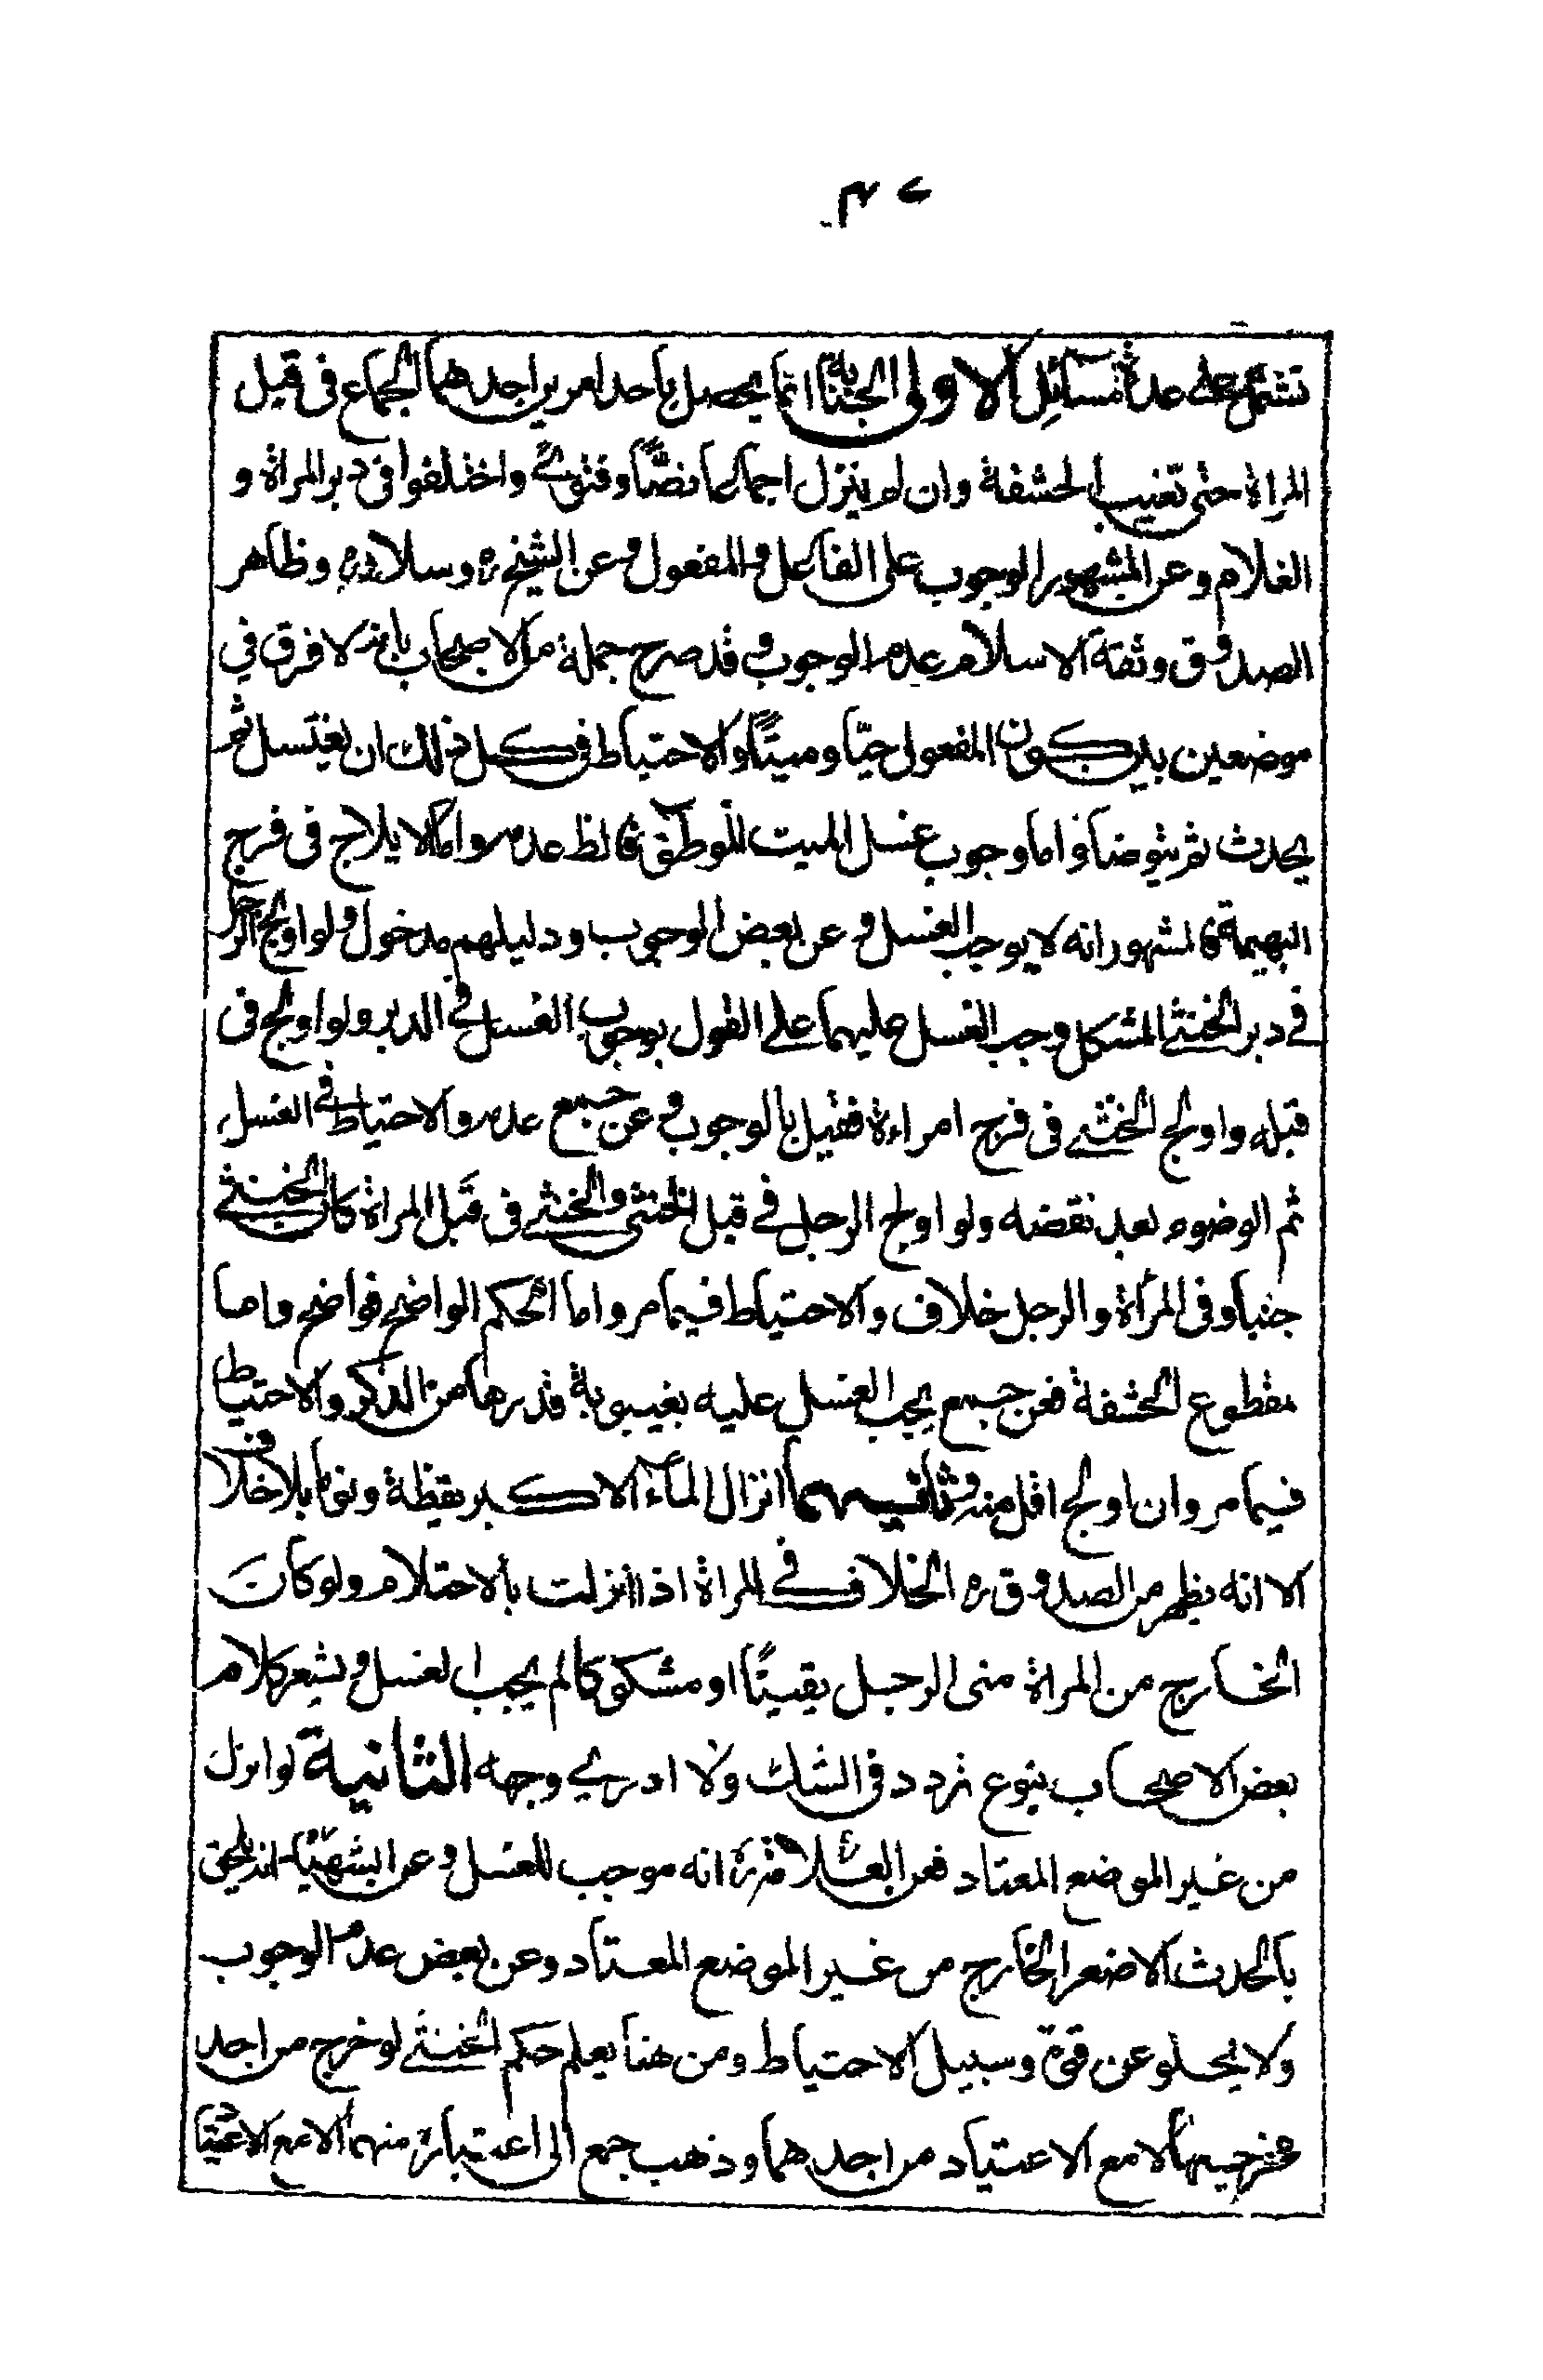 تشتمل على عدة مسائل الاولى الجنابة انما يحصل باحد امرين احدهما الجماع فى قبل
المراة حتى تغيب الحشفة وان لم ينزل اجماعا نصّا وفتوىٰ واختلفوا فى دبر المراة و
الغلام وعن المشهور الوجوب على الفاعل والمفعول وعن الشيخ ره وسلار ره وظاهر
الصدوق وثقة الاسلام عدم الوجوب وقد صرح جملة من الاصحاب بانه لا فرق في
موضعين بين كون المفعول حيّا وميتًا والاحتياط فى كل ذلك ان يغتسل ثم
يحدث ثم يتوضأ واما وجوب غسل الميت للوطى فالظ عدمه واما الايلاج فى فرج
البهيمة فالمشهور انه لا يوجب الغسل وعن بعض الوجوب ودليلهم مدخول ولو اولج الرجل
في دبر الخنثى المشكل وجب الغسل عليهما على القول بوجوب الغسل في الدبر ولو اولج فى
قبله واولج الخنثى فى فرج امراءة فقيل بالوجوب وعن جميع عدمه والاحتياط في الغسل
ثم الوضوء بعد نقضه ولو اولج الرجل في قبل الخنثى والخنثى فى قبل المراة كان الخنثى
جنبا وفى المرأة والرجل خلاف والاحتياط فيما مر واما الحكم الواضح فواضح واما
مقطوع الحشفة فعن جميع يجب الغسل عليه بغيبوبة قدرها من الذكر والاحتياط
فيما مر وان اولج اقل منه وثانيهما انزال الماء الاكبر يقظة ونوما بلا خلاف
الا انه يظهر من الصدوق ره الخلاف في المراة اذا انزلت بالاحتلام ولو كان
الخارج من المراة منى الرجل يقينًا او مشكوكا لم يجب الغسل ويشعر كلام
بعض الاصحاب بنوع تردد فى الشك ولا ادرى وجهه الثانية لو انزل
من غير الموضع المعتاد فعن العلامة ره انه موجب للغسل وعن الشهيد انه يلحق
بالحدث الاصغر الخارج من غير الموضع المعتاد وعن بعض عدم الوجوب
ولا يخلو عن قوّة وسبيل الاحتياط ومن هنا يعلم حكم الخنثى لو خرج من احد
مخرجيهما لا مع الاعتياد من احدهما وذهب جمع الى اعتباره منهما الا مع الاعتياد